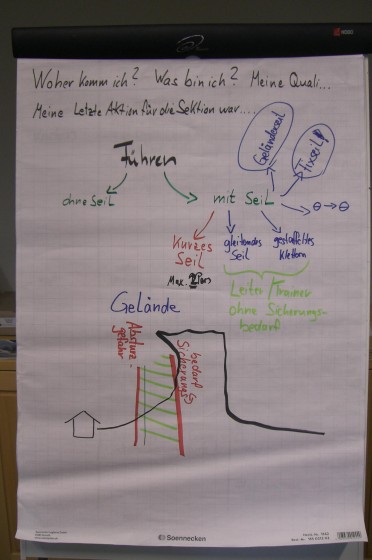 Woher komm ich? Was bin ich? Meine Quali...
Meine Letzte Aktion für die Sektion war....
Geländerseil
Fixseil
Führen
ohne Seil
mit Seil
Kurzes
Seil
Max. 2 Pers
gleitendes
Seil
gestaffeltes
Klettern
Leiter/Trainer
ohne Sicherungs-
bedarf
Gelände
Absturz-
gefahr
Sicherungs
bedarf
Soennecken